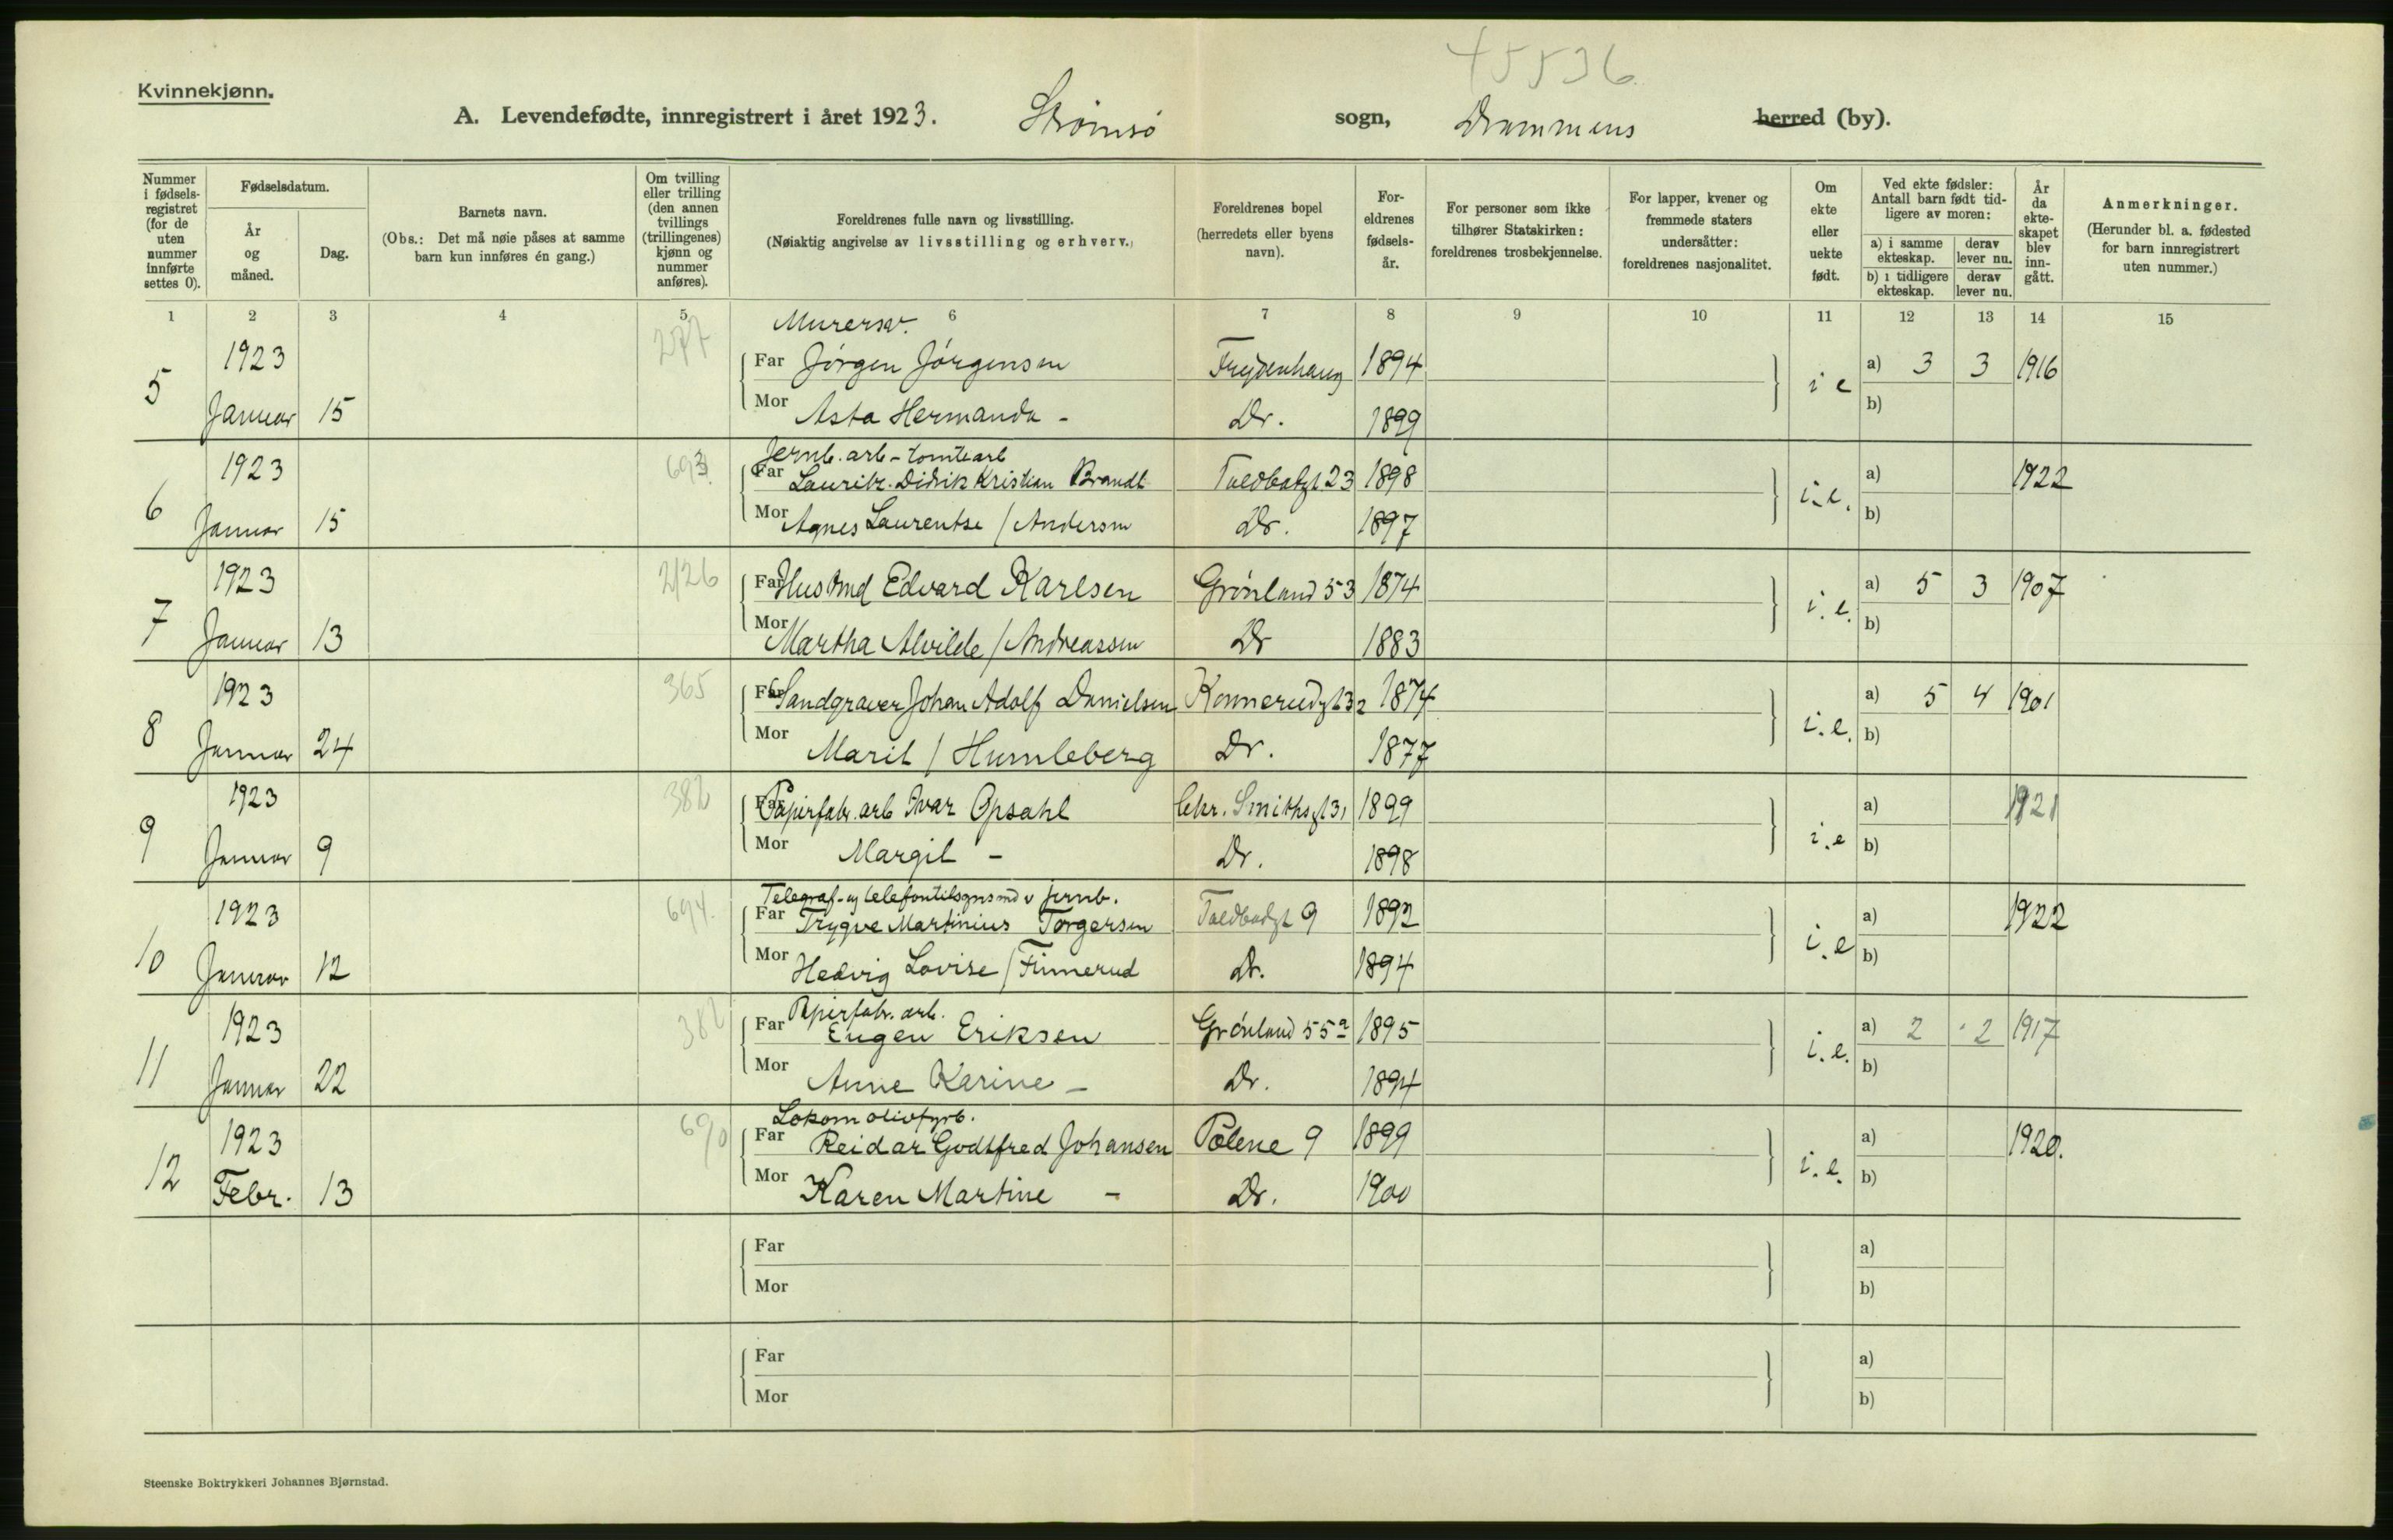 45536
Kvinnekjønn.
A. Levendefødte, innregistrert i året 1923. Strømsø sogn, Drammens herred (by).
Nummer i fødsels-registret (for de uten nummer innførte settes 0).
Fødselsdatum.
År og måned.
Dag.
Barnets navn.
(Obs.: Det må nøie påses at samme barn kun innføres én gang.)
Om tvilling eller trilling (den annen tvillings (trillingenes) kjønn og nummer anføres).
Foreldrenes fulle navn og livsstilling.
(Nøiaktig angivelse av livsstilling og erhverv.)
Foreldrenes bopel (herredets eller byens navn).
For-eldrenes fødsels-år.
For personer som ikke tilhører Statskirken: foreldrenes trosbekjennelse.
For lapper, kvener og fremmede staters undersåtter: foreldrenes nasjonalitet.
Om ekte eller uekte født.
Ved ekte fødsler: Antall barn født tidligere av moren:
a) i samme ekteskap. derav lever nu.
b) i tidligere ekteskap. derav lever nu.
År da ekte-skapet blev inn-gått.
Anmerkninger.
(Herunder bl. a. fødested for barn innregistrert uten nummer.)
1 2 3 4 5 6 7 8 9 10 11 12 13 14 15
277 Murersv.
5 1923 Far Jörgen Jörgensen Frydenhaug 1894 i e a) 3 3 1916
Januar 15 Mor Asta Hermanda - Dr. 1899 b)
693 Jernb. arb - tomtearb
6 1923 Far Lauritz Didrik Kristian Brandt Toldbodgt 23 1898 i.e. a) 1922
Januar 15 Mor Agnes Laurentse / Andersen Dr. 1897 b)
7 1923 2/26 Far Husmd Edvard Karlsen Grönland 53 1874 i.e. a) 5 3 1907
Januar 13 Mor Martha Alvilde / Andreassen Dr 1883 b)
8 1923 365 Far Sandgraver Johan Adolf Danielsen Konnerudgt 32 1874 i.e. a) 5 4 1901
Januar 24 Mor Marit / Humleberg Dr. 1877 b)
9 1923 382 Far Papirfabr. arb Ivar Opsahl Chr. Smithsgt 31 1899 i.e a) 1921
Januar 9 Mor Margit - Dr. 1898 b)
694. Telegraf- og telefontilsynsmd v jernb.
10 1923 Far Trygve Martinius Torgersen Toldbodgt 9 1892 i.e a) 1922
Januar 12 Mor Hedvig Lovise / Finnerud Dr. 1894 b)
382 Papirfabr. arb.
11 1923 Far Eugen Eriksen Grönland 55a 1895 i.e. a) 2 2 1917
Januar 22 Mor Anne Karine - Dr. 1894 b)
690 Lokomotivfyrb.
12 1923 Far Reidar Godtfred Johansen Pølene 9 1899 i.e. a) 1920.
Febr. 13 Mor Karen Martine - Dr. 1900 b)
Far a)
Mor b)
Far a)
Mor b)
Steenske Boktrykkeri Johannes Bjørnstad.